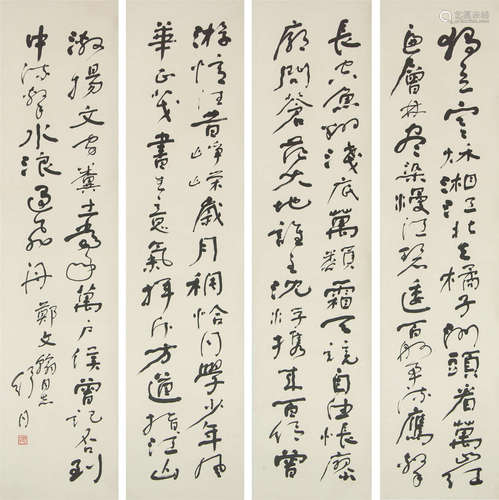 独立寒秋湘江北去橘子洲頭看萬山红
遍層林尽染熳江碧透百舸争流鹰擊
長空魚翔淺底萬類霜天競自由悵寥
廓問蒼茫大地誰主沈浮携来百侣曾
游憶往昔崢嶸歲月稠恰同學少年風
華正茂書生意氣揮斥方遒指江山
激揚文字糞土當年萬户侯曾記否到
中流擊水浪遏飛舟 鄭文翰同志
舒同